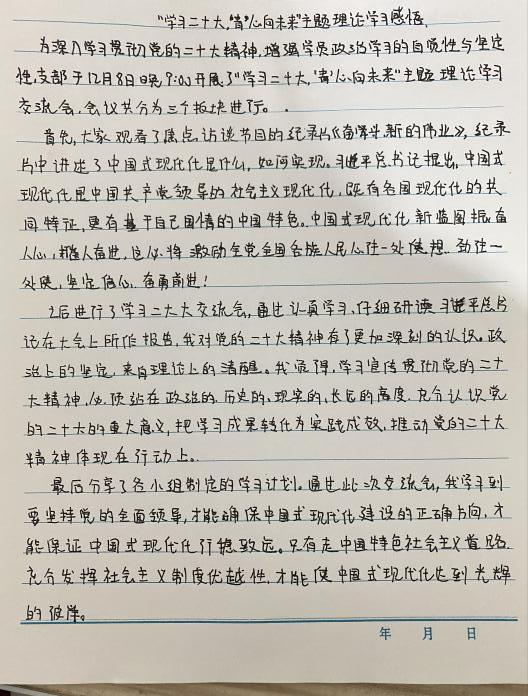 "学习二十大,'青'心向未来"主题理论学习感悟.
为深入学习贯彻党的二十大精神,增强学员政治学习的自觉性与坚定
性,支部于12月8日晚7:00开展了"学习二十大,'青'心向未来"主题理论学习
交流会,会议共分为三个板块进行。
首先,大家观看了焦点访谈节目的纪录片《奋斗新的伟业》,纪录
片中讲述了中国式现代化是什么,如何实现。习近平总书记提出,中国式
现代化是中国共产党领导的社会主义现代化,既有各国现代化的共
同特征,更有基于自己国情的中国特色。中国式现代化新蓝图振奋
人心,催人奋进,这必将激励全党全国各族人民心往一处使想、劲往一
处使,坚定信心,奋勇前进!
之后进行了学习二大大交流会,通过认真学习,仔细研读习近平总书
记在大会上所作报告,我对党的二十大精神有了更加深刻的认识。政
治上的坚定,来自理论上的清醒。我觉得,学习宣传贯彻党的二十
大精神,必须站在政治的、历史的、现实的、长远的高度,充分认识党
的二十大的重大意义,把学习成果转化为实践成效,推动党的二十大
精神体现在行动上。
最后分享了各小组制定的学习计划。通过此次交流会,我学习到
要坚持党的全面领导,才能确保中国式现代化建设的正确方向,才
能保证中国式现代化行稳致远。只有走中国特色社会主义道路,
充分发挥社会主义制度优越性,才能使中国式现代化达到光辉
的彼岸。
年 月 日